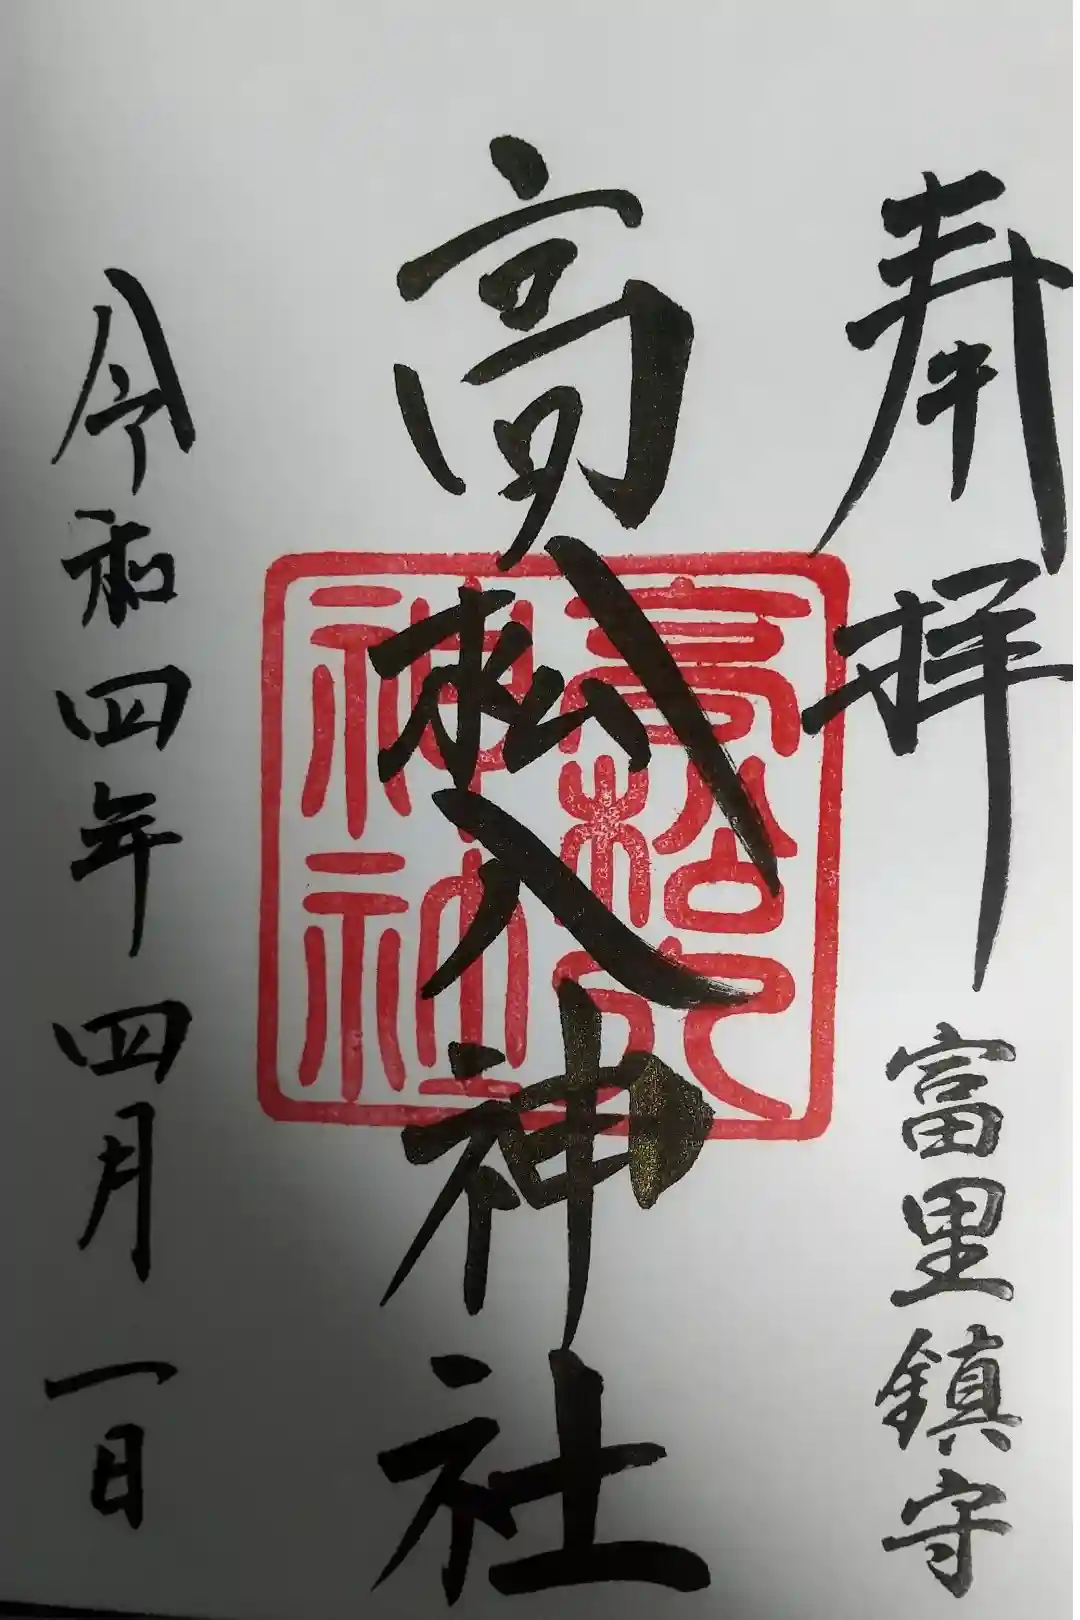 奉拝
富里鎮守
高松入神社
高松入
神社
令和四年四月一日